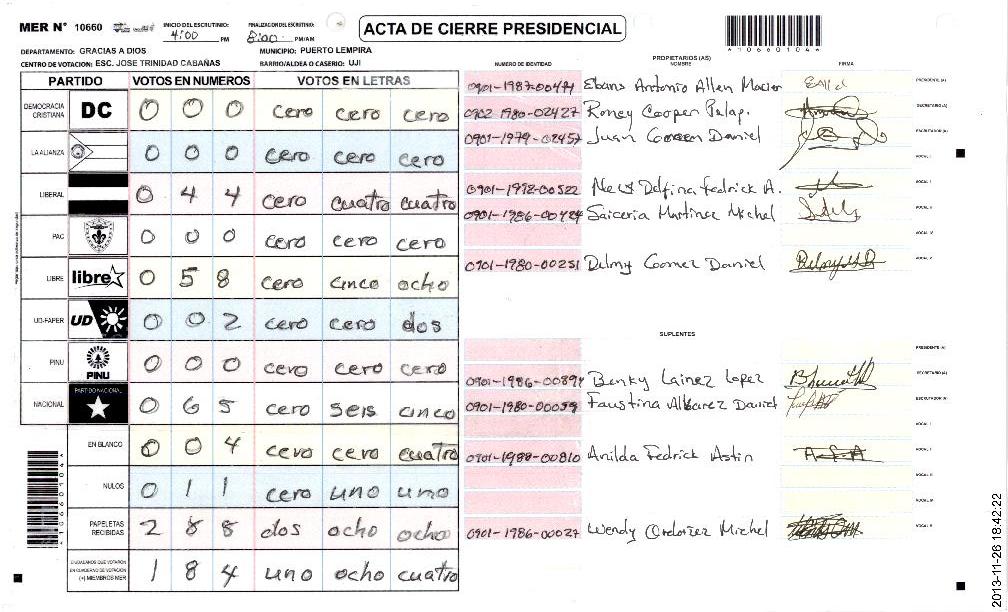 MER N° 10660
INICIO DEL ESCRUTINIO: 4:00 PM
FINALIZACION DEL ESCRUTINIO: 8:00 PM/AM
ACTA DE CIERRE PRESIDENCIAL
4106601044
DEPARTAMENTO: GRACIAS A DIOS
MUNICIPIO: PUERTO LEMPIRA
CENTRO DE VOTACION: ESC. JOSE TRINIDAD CABAÑAS
BARRIO/ALDEA O CASERIO: UJI
PARTIDO VOTOS EN NUMEROS VOTOS EN LETRAS
DEMOCRACIA CRISTIANA DC 0 0 0 cero cero cero
LA ALIANZA 0 0 0 cero cero cero
LIBERAL 0 4 4 cero cuatro cuatro
PAC 0 0 0 cero cero cero
LIBRE libre 0 5 8 cero cinco ocho
UD-FAPER UD 0 0 2 cero cero dos
PINU PINU 0 0 0 cero cero cero
NACIONAL PARTIDO NACIONAL 0 6 5 cero seis cinco
EN BLANCO 0 0 4 cero cero cuatro
NULOS 0 1 1 cero uno uno
PAPELETAS RECIBIDAS 2 8 8 dos ocho ocho
CIUDADANOS QUE VOTARON EN CUADERNO DE VOTACION (+) MIEMBROS MER 1 8 4 uno ocho cuatro
PROPIETARIOS (AS)
NUMERO DE IDENTIDAD NOMBRE FIRMA
0901-1987-00471 Ebans Antonio Allen PRESIDENTE (A)
0902 1980-02427 Roney Cooper SECRETARIO (A)
0901-1979-02457 Juan Daniel ESCRUTADOR (A)
VOCAL I
0901-1972-00522 Delfina fedrick A. VOCAL II
0901-1986-00424 Martinez Michel VOCAL III
VOCAL IV
0901-1980-00251 Delmy Gomez Daniel VOCAL V
SUPLENTES
PRESIDENTE (A)
0901-1986-00897 Benky Lainez Lopez SECRETARIO (A)
0901-1980-00059 Faustina Daniel ESCRUTADOR (A)
VOCAL I
0901-1988-00810 Anilda Fedrick Astin
VOCAL III
VOCAL IV
0901-1986-00027 Wendy Ordoñez Michel VOCAL V
2013-11-26 18:42:22